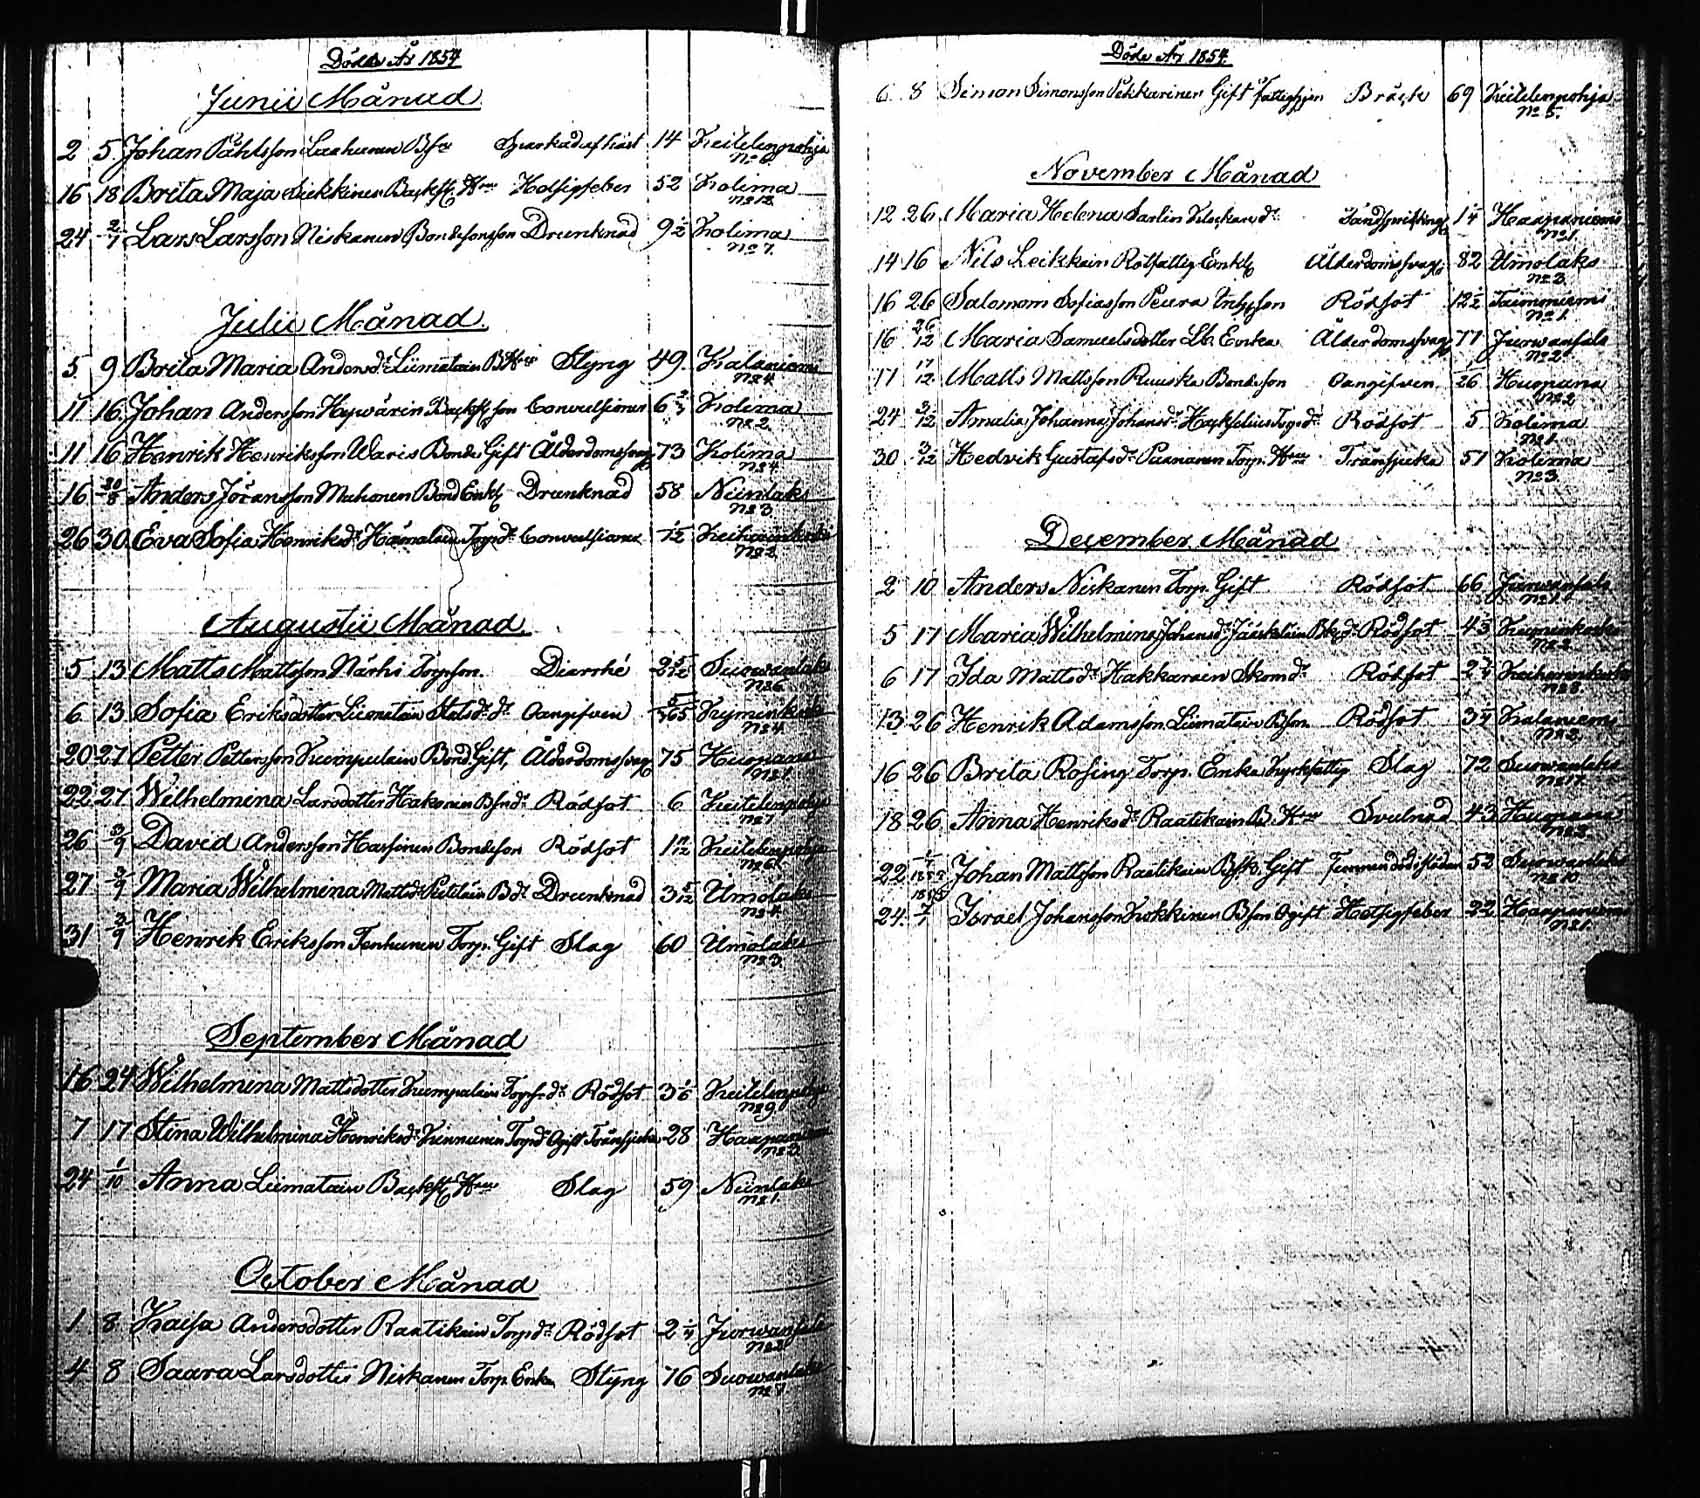 Döde År 1854
Junii Månad
2 5 Johan Påhlsson Laakunen Bson Sparkad af häst 14 Keitelenpohja
No 6.
16 18 Brita Maja Hru Hetsigfeber 52 Kolima
No 12.
24 2/7 Lars Larsson Niskanen Bondesonson Drunknad 9 1/2 Kolima
No 7.
Julii Månad
5 9 Brita Maria Andersdr Liimatain B Hru Styng 49 Kalaniemi
No 4.
11 16 Johan Andersson Hyvärin Backst son Convulsioner 6 2/3 Kolima
No 2.
11 16 Henrik Henriksson Waris Bonde Gift Ålderdomssvag 73 Kolima
No 4.
16 20/8 Anders Jöransson Muhonen Bond Enkl Drunknad 58 Niinilaks
No 3
26 30 Eva Sofia Henriksdr Hämäläin Torpdr Convulsioner 1/12
No 2.
Augustii Månad
5 13 Matts Mattsson Närhi Torpson Diarrhé 2 5/12 Suovanlaks
No 6.
6 13 Sofia Eriksdotter Liimatain dr Oangifven 5/365 Kymönkoski
No 4.
20 27 Petter Pettersson Kumpulain Bond Gift, Ålderdomssvag 75 Huopana
No 1.
22 27 Wilhelmina Larsdotter Hakonen Bondr Rödsot 6 Keitelenpohja
No 7
26 3/9 David Andersson Hassinen Bondeson Rödsot 1 11/12 Keitelenpohja
No 6.
27 3/9 Maria Wilhelmina Mattsdr Drunknad 3 5/12 Umolaks
No 4.
31 3/9 Henrik Eriksson Tenhunen Torp. Gift Slag 60 Umolaks
No 3.
September Månad
16 24 Wilhelmina Mattsdotter Kumpulain Torpdr Rödsot 3 1/6 Keitelenpohja
No 9.
7 17 Stina Wilhelmina Henriksdr Kinnunen Torpdr Ogift Trånsjuka 28 Haapaniemi
No 3.
24 1/10 Anna Liimatain Backst Hru Slag 59 Niinilaks
No 1.
October Månad
1 8 Kaisa Andersdotter Raatikain Torpdr Rödsot 2 1/4 Jurvansalo
No 2.
4 8 Saara Larsdotter Niskanen Torp. Enka Styng 76 Suovanlaks
No 1.
Döde År 1854
6 8 Simon Simonsson Pekkarinen Gift Fattighjon Bråck 69 Keitelenpohja
No 5.
November Månad
12 26 Maria Helena Sarlin Klockaredr Tandsprickning 1 1/4 Haapaniemi
No 1.
14 16 Nils Leikkain Rotfattig Enkl Ålderdomssvag 82 Umolaks
No 3.
16 26 Salomom Sofiasson Peura Rödsot 12 1/2 Taimoniemi
No 1.
16 26/12 Maria Samuelsdotter Enka Ålderdomssvag 77 Jurvansalo
No 2.
17 17/12 Matts Mattsson Ruuska Bondeson Oangifven 1/26 Huopana
No 2.
24 3/12 Amalia Johanna Johansdr Torpdr Rödsot 5 Kolima
No 1.
30 3/12 Hedvik Gustafsdr Paananen Torp. Hru Trånsjuka 57 Kolima
No 3.
December Månad
2 10 Anders Niskanen Torp. Gift Rödsot 66 Jurvansalo
No 1.
5 17 Maria Wilhelmina Johansdr Jääskeläin Rödsot 4 3/4 Kymönkoski
No 2.
6 17 Ida Mattsdr Hakkarain Skomdr Rödsot 2 3/4
No 8.
13 26 Henrik Adamsson Liimatain Bson Rödsot 3 1/4 Kalaniemi
No 2.
16 26 Brita Rosing Torp. Enka Kyrkfattig Slag 72 Suovanlaks
No 17.
18 26 Anna Henriksdr Raatikain B. Hru Svulnad 43 Huopana
No 3.
22 Johan Mattsson Raatikain Gift Funnen död i slädan 52 Suovanlaks
No 10.
24. 1855 7/1 Israel Johansson Kokkinen Bson Ogift Hetsigfeber 22 Haapaniemi
No 1.